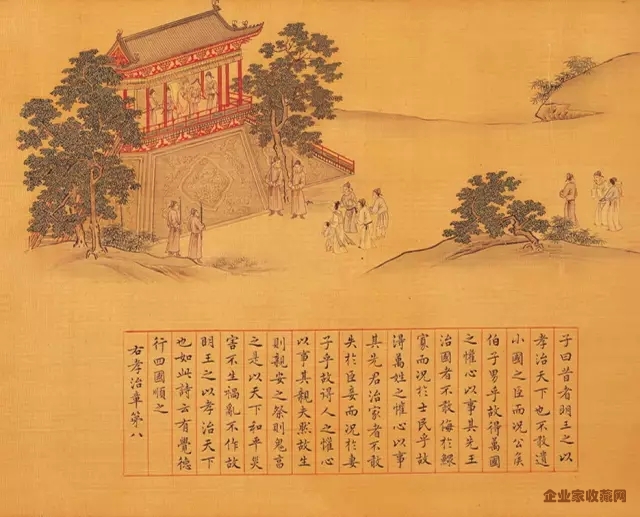 子曰昔者明王之以
孝治天下也不敢遺
小國之臣而況公侯
伯子男乎故得萬國
之懽心以事其先王
治國者不敢侮於鰥
寡而況於士民乎故
得萬姓之懽心以事
其先君治家者不敢
失於臣妾而況於妻
子乎故得人之懽心
以事其親夫然故生
則親安之祭則鬼享
之是以天下和平災
害不生禍亂不作故
明王之以孝治天下
也如此詩云有覺德
行四國順之
右孝治章第八
企业家收藏网